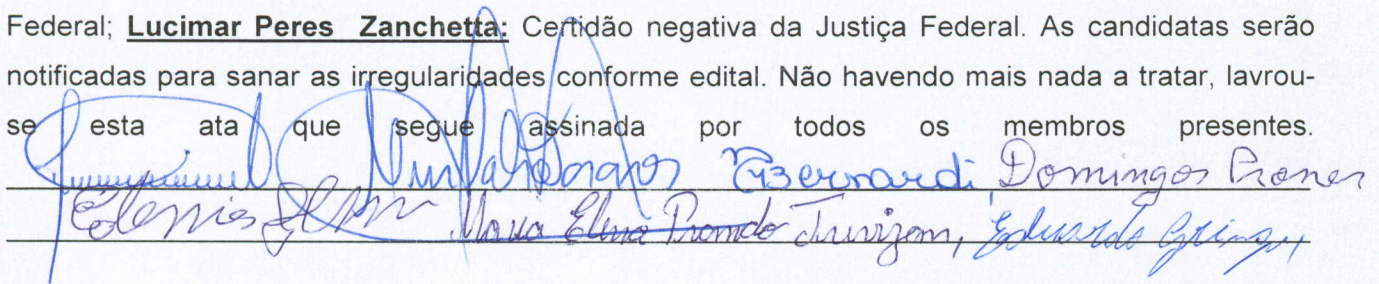 Federal; Lucimar Peres Zanchetta: Certidão negativa da Justiça Federal. As candidatas serão
notificadas para sanar as irregularidades conforme edital. Não havendo mais nada a tratar, lavrou-
se esta ata que segue assinada por todos os membros presentes.
Bernardi Domingos
Maria Elena Trevizam, Eduardo